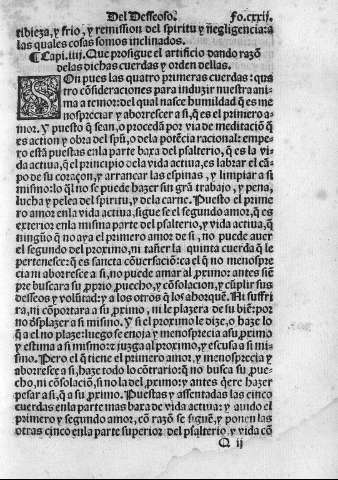 Del Desseoso. Fo.cxxij.
tibieza, y frio, y remission del spiritu y ñegligencia: a
las quales cosas somos inclinados.
¶ Capi.iiij. Que prosigue el artificio dando razõ
de las dichas cuerdas y orden dellas.
SOn pues las quatro primeras cuerdas: qua
tro cõsideraciones para induzir nuestra ani
ma a temor: del qual nasce humildad q̃ es me
nospreciar y aborrescer a si, q̃ es el primero a-
mor. Y puesto q̃ sean, o procedã por via de meditaciõ q̃
es action y obra del spũ, o dela potẽcia racional: empe-
ro està puestas en la parte baxa del psalterio, q̃ es la vi-
da actiua, q̃l principio dela vida actiua, es labrar el cã-
po de su coraçon, y arrancar las espinas, y limpiar a si
mismo: lo q̃l no se puede hazer sin grã trabajo, y pena,
lucha y pelea del spiritu, y dela carne. Puesto el prime
ro amor enla vida actiua, sigue se el segundo amor, q̃ es
exterior enla misma parte del psalterio, y vida actiua, q̃
ningũo q̃ no aya el primero amor de si, no puede auer
el segundo del proximo, ni tañer la quinta cuerda q̃ le
pertenesce: q̃ es sancta cõuersaciõ: ca el q̃ no menospre
cia ni aborresce a si, no puede amar al ꝓximo: antes siẽ
pre buscara su ꝓprio ꝓuecho, y cõsolacion, y cũplir sus
desseos y volũtad: y a los otros q̃ los ahorquẽ. Ni suffri
ra, ni cõportara a su ꝓximo, ni le plazera de su biẽ: por
no desplazer a si mismo. Y si el proximo le dize, o haze lo
q̃ a el no plaze: luego se enoja y menosprecia a su ꝓximo
y estima a si mismo: y juzga al proximo, y escusa a si mi-
smo. Pero el q̃ tiene el primero amor, y menosprecia y
aborresce a si, haze todo lo cõtrario: q̃ no busca su ꝓue-
cho, ni cõsolaciõ, si no la del ꝓximo: y antes q̃rre hazer
pesar a si, q̃ a su ꝓximo. Puestas y assentadas las cinco
cuerdas enla parte mas baxa de vida actiua: y auido el
primero y segundo amor, cõ razõ se siguẽ, y ponen las
otras cinco enla parte superior del psalterio, y vida cõ
Q ij